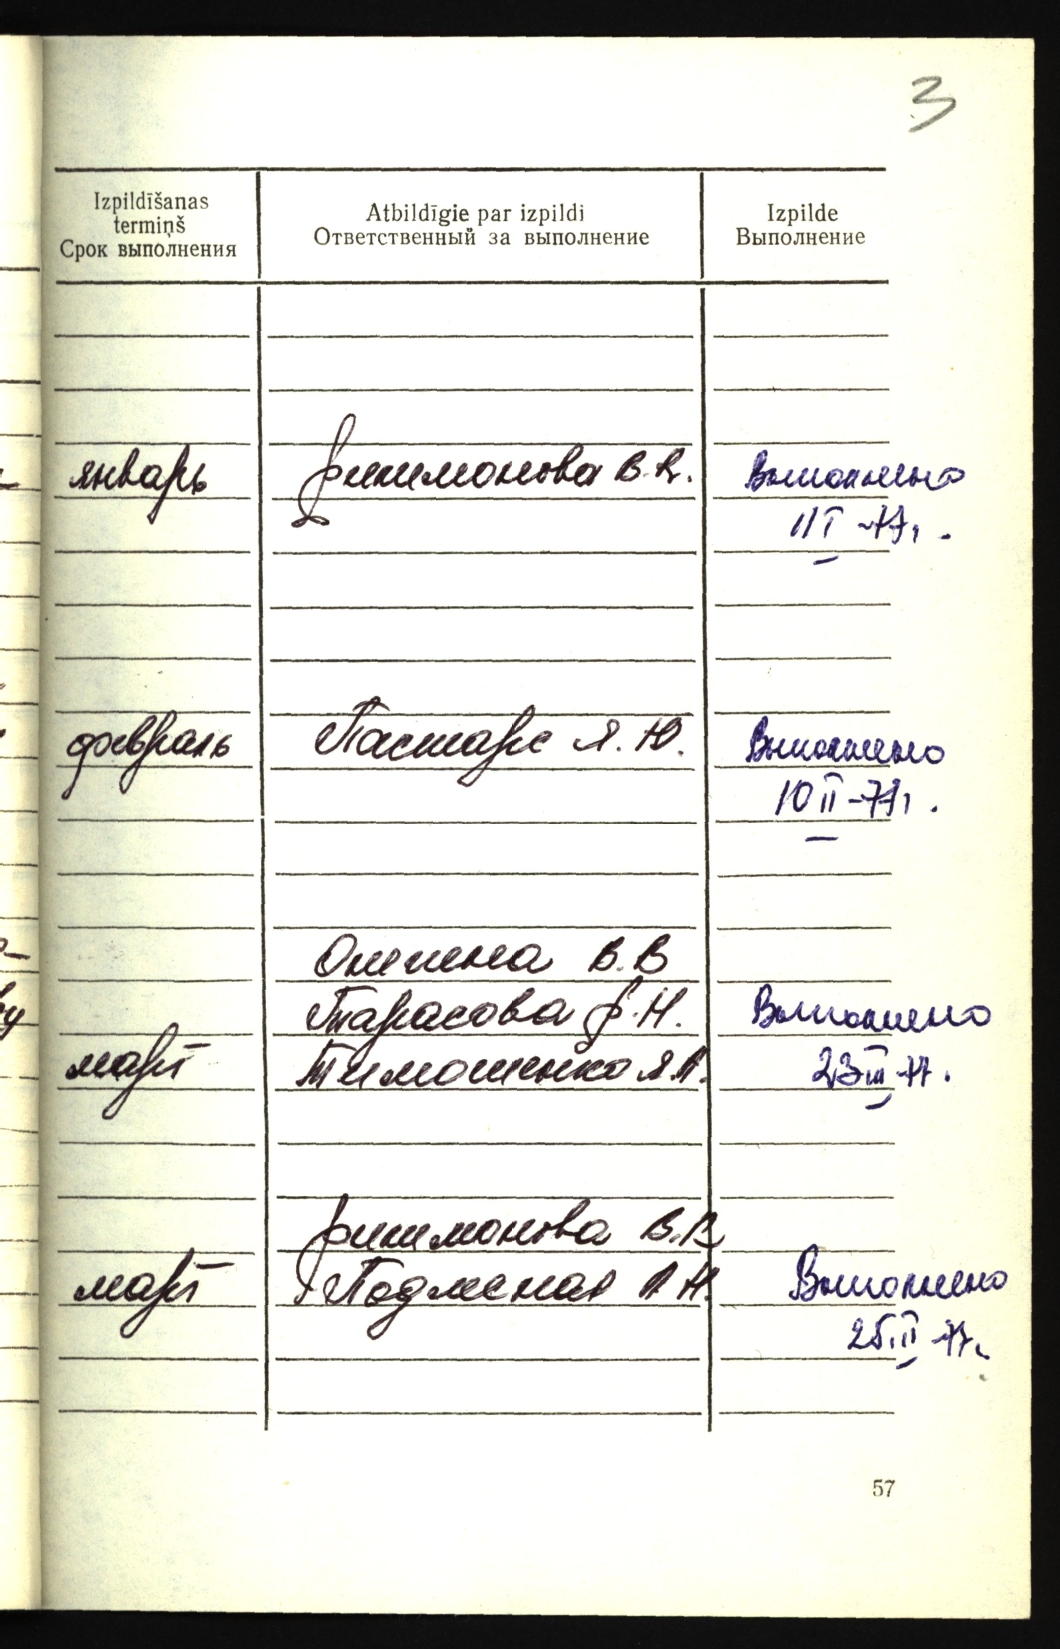 3
Izpildīšanas
termiņš
Срок выполнения
Atbildīgie par izpildi
Ответственный за выполнение
Izpilde
Выполнение
январь
В.В.
Выполнено
11 I -77г.
февраль
Пастарс Я.Ю.
Выполнено
10 II -77г.
В.В
Тарасова Н.
Выполнено
март
Тимошенко Я.А.
23 III -77.
В.В
март
А Н.
Выполнено
77г.
57